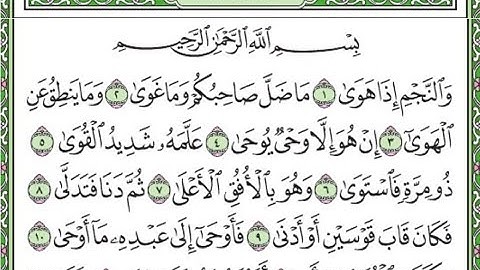 بِسْمِ ٱللَّهِ ٱلرَّحْمَٰنِ ٱلرَّحِيمِ
وَٱلنَّجْمِ إِذَا هَوَىٰ ١ مَا ضَلَّ صَاحِبُكُمْ وَمَا غَوَىٰ ٢ وَمَا يَنطِقُ عَنِ
ٱلْهَوَىٰٓ ٣ إِنْ هُوَ إِلَّا وَحْىٌ يُوحَىٰ ٤ عَلَّمَهُۥ شَدِيدُ ٱلْقُوَىٰ ٥
ذُو مِرَّةٍ فَٱسْتَوَىٰ ٦ وَهُوَ بِٱلْأُفُقِ ٱلْأَعْلَىٰ ٧ ثُمَّ دَنَا فَتَدَلَّىٰ ٨
فَكَانَ قَابَ قَوْسَيْنِ أَوْ أَدْنَىٰ ٩ فَأَوْحَىٰٓ إِلَىٰ عَبْدِهِۦ مَآ أَوْحَىٰ ١٠